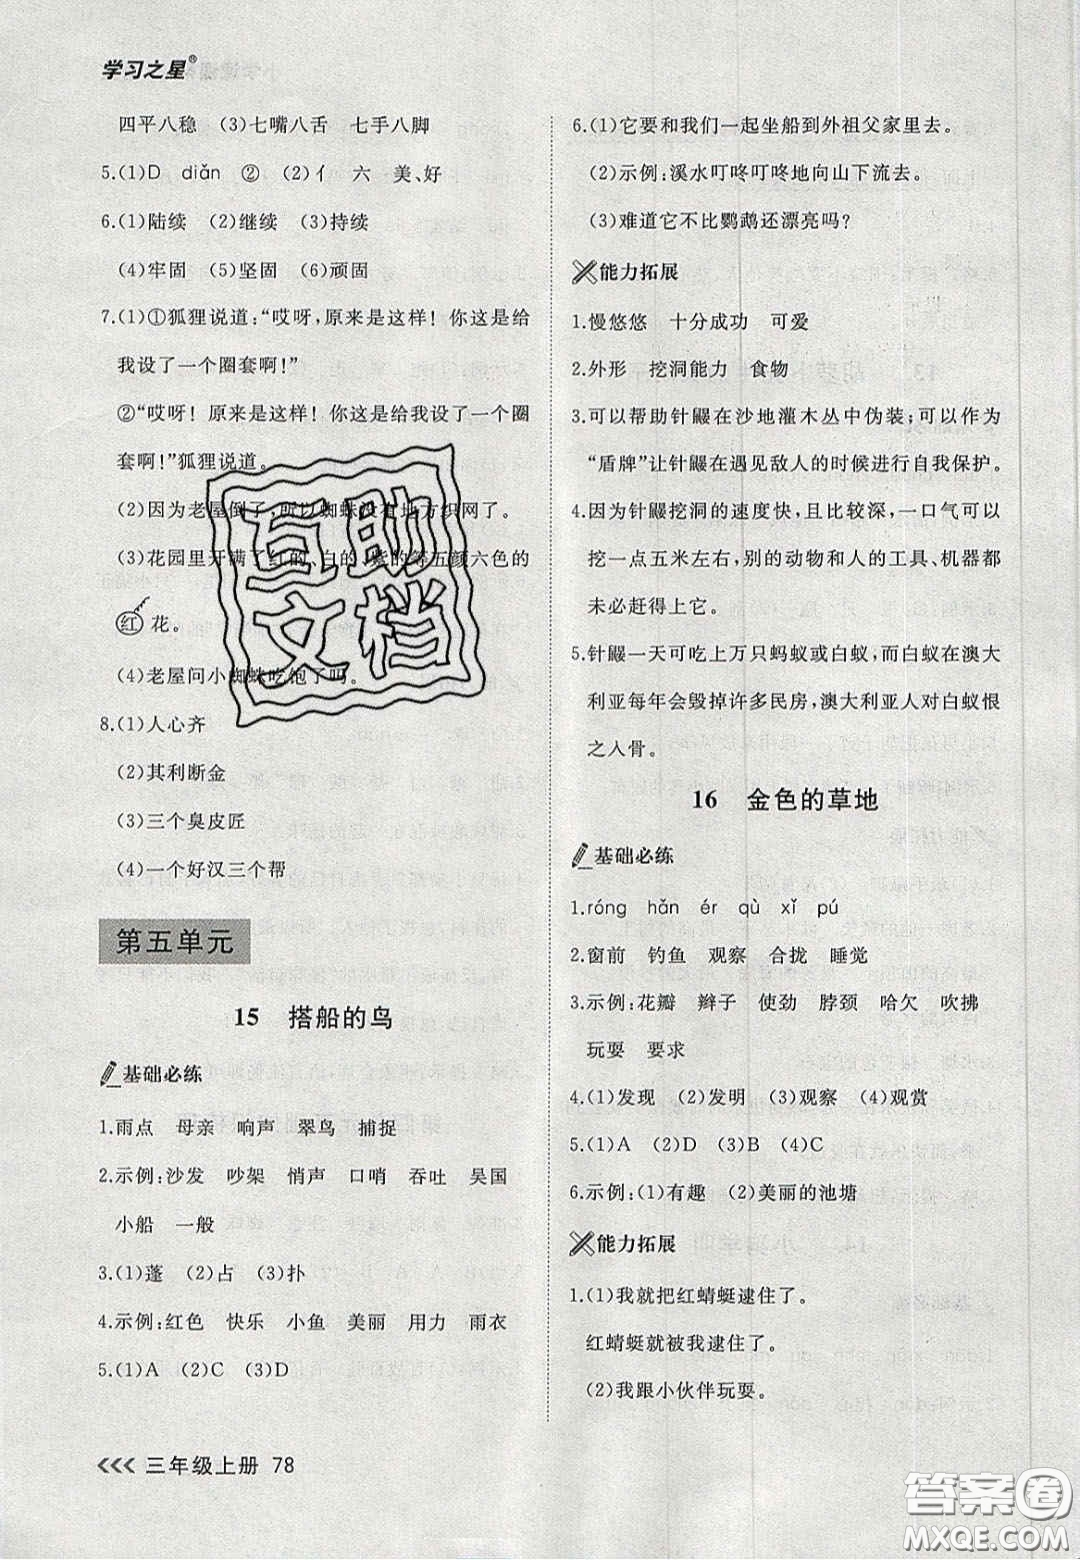 学习之星®
四平八稳 (3)七嘴八舌 七手八脚
5.(1)D diǎn ② (2)亻 六 美、好
6.(1)陆续 (2)继续 (3)持续
(4)牢固 (5)坚固 (6)顽固
7.(1)①狐狸说道：“哎呀，原来是这样！你这是给
我设了一个圈套啊！”
②“哎呀！原来是这样！你这是给我设了一个圈
套啊！”狐狸说道。
(2)因为老屋倒了，所以蜘蛛没有地方织网了。
(3)花园里开满了红的、白的、紫的等五颜六色的
红 花。
(4)老屋问小蜘蛛吃饱了吗。
8.(1)人心齐
(2)其利断金
(3)三个臭皮匠
(4)一个好汉三个帮
第五单元
15 搭船的鸟
基础必练
1.雨点 母亲 响声 翠鸟 捕捉
2.示例：沙发 吵架 悄声 口哨 吞吐 吴国
小船 一般
3.(1)蓬 (2)占 (3)扑
4.示例：红色 快乐 小鱼 美丽 用力 雨衣
5.(1)A (2)C (3)D
6.(1)它要和我们一起坐船到外祖父家里去。
(2)示例：溪水叮咚叮咚地向山下流去。
(3)难道它不比鹦鹉还漂亮吗？
能力拓展
1.慢悠悠 十分成功 可爱
2.外形 挖洞能力 食物
3.可以帮助针鼹在沙地灌木丛中伪装；可以作为
“盾牌”让针鼹在遇见敌人的时候进行自我保护。
4.因为针鼹挖洞的速度快，且比较深，一口气可以
挖一点五米左右，别的动物和人的工具、机器都
未必赶得上它。
5.针鼹一天可吃上万只蚂蚁或白蚁，而白蚁在澳大
利亚每年会毁掉许多民房，澳大利亚人对白蚁恨
之入骨。
16 金色的草地
基础必练
1.róng hǎn ér qù xǐ pú
2.窗前 钓鱼 观察 合拢 睡觉
3.示例：花瓣 辫子 使劲 脖颈 哈欠 吹拂
玩耍 要求
4.(1)发现 (2)发明 (3)观察 (4)观赏
5.(1)A (2)D (3)B (4)C
6.示例：(1)有趣 (2)美丽的池塘
能力拓展
1.(1)我就把红蜻蜓逮住了。
红蜻蜓就被我逮住了。
(2)我跟小伙伴玩耍。
三年级上册 78
互助
文档
答案圈
MXQE.COM